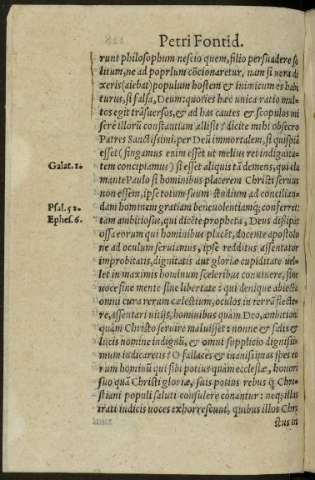 Petri Fontid.
runt philosophum nescio quem, filio persuadere so
litum, ne ad poprlum cōcionaretur, nam si uera di
xeris (aiebat) populum hostem & inimicum es habi
turus, si falsa, Deum: quoties hæc unica ratio mul
tos egit trāsuersos, & ad has cautes & scopulos mi
serè illorū constantiam allisit? dicite mihi obsecro
Patres Sanctissimi, per Deū immortalem, si quispiā
esset (fingamus enim esset ut melius rei indignita-
tem concipiamus) si esset aliquis tā demens, qui cla
mante Paulo si hominibus placerem Christi seruus
non essem, ipse totum suum studium ad concilian-
dam hominem gratiam beneuolentiamq; conferret:
tam ambitiosus, qui dicēte propheta, Deus dissipat
ossa eorum qui hominibus placēt, docente apostolo
ne ad oculum seruiamus, ipse redditus assentator
improbitatis, dignitatis aut gloriæ cupiditate uel-
let in maximis hominum sceleribus conniuere, sine
uoce sine mente sine libertate: qui denique abiecta
omni cura rerum cælestium, oculos in terrā flecte-
re, assentari uitijs, hominibus quàm Deo, ambitioni
quàm Christo seruire maluisset: nonne & solis &
lucis nomine indignū, & omni supplicio dignissi-
mum iudicaretis? O fallaces & inanissimas spes eo
rum hominū qui sibi potius quàm ecclesiæ, honori
suo quā Christi gloriæ, suis potius rebus q̄ Chri-
stiani populi saluti consulere conantur: neq; illis
irati iudicis uoces exhorrescunt, quibus illos Chri
stus in
Galat. 1.
Psal. 52.
Ephes. 6.